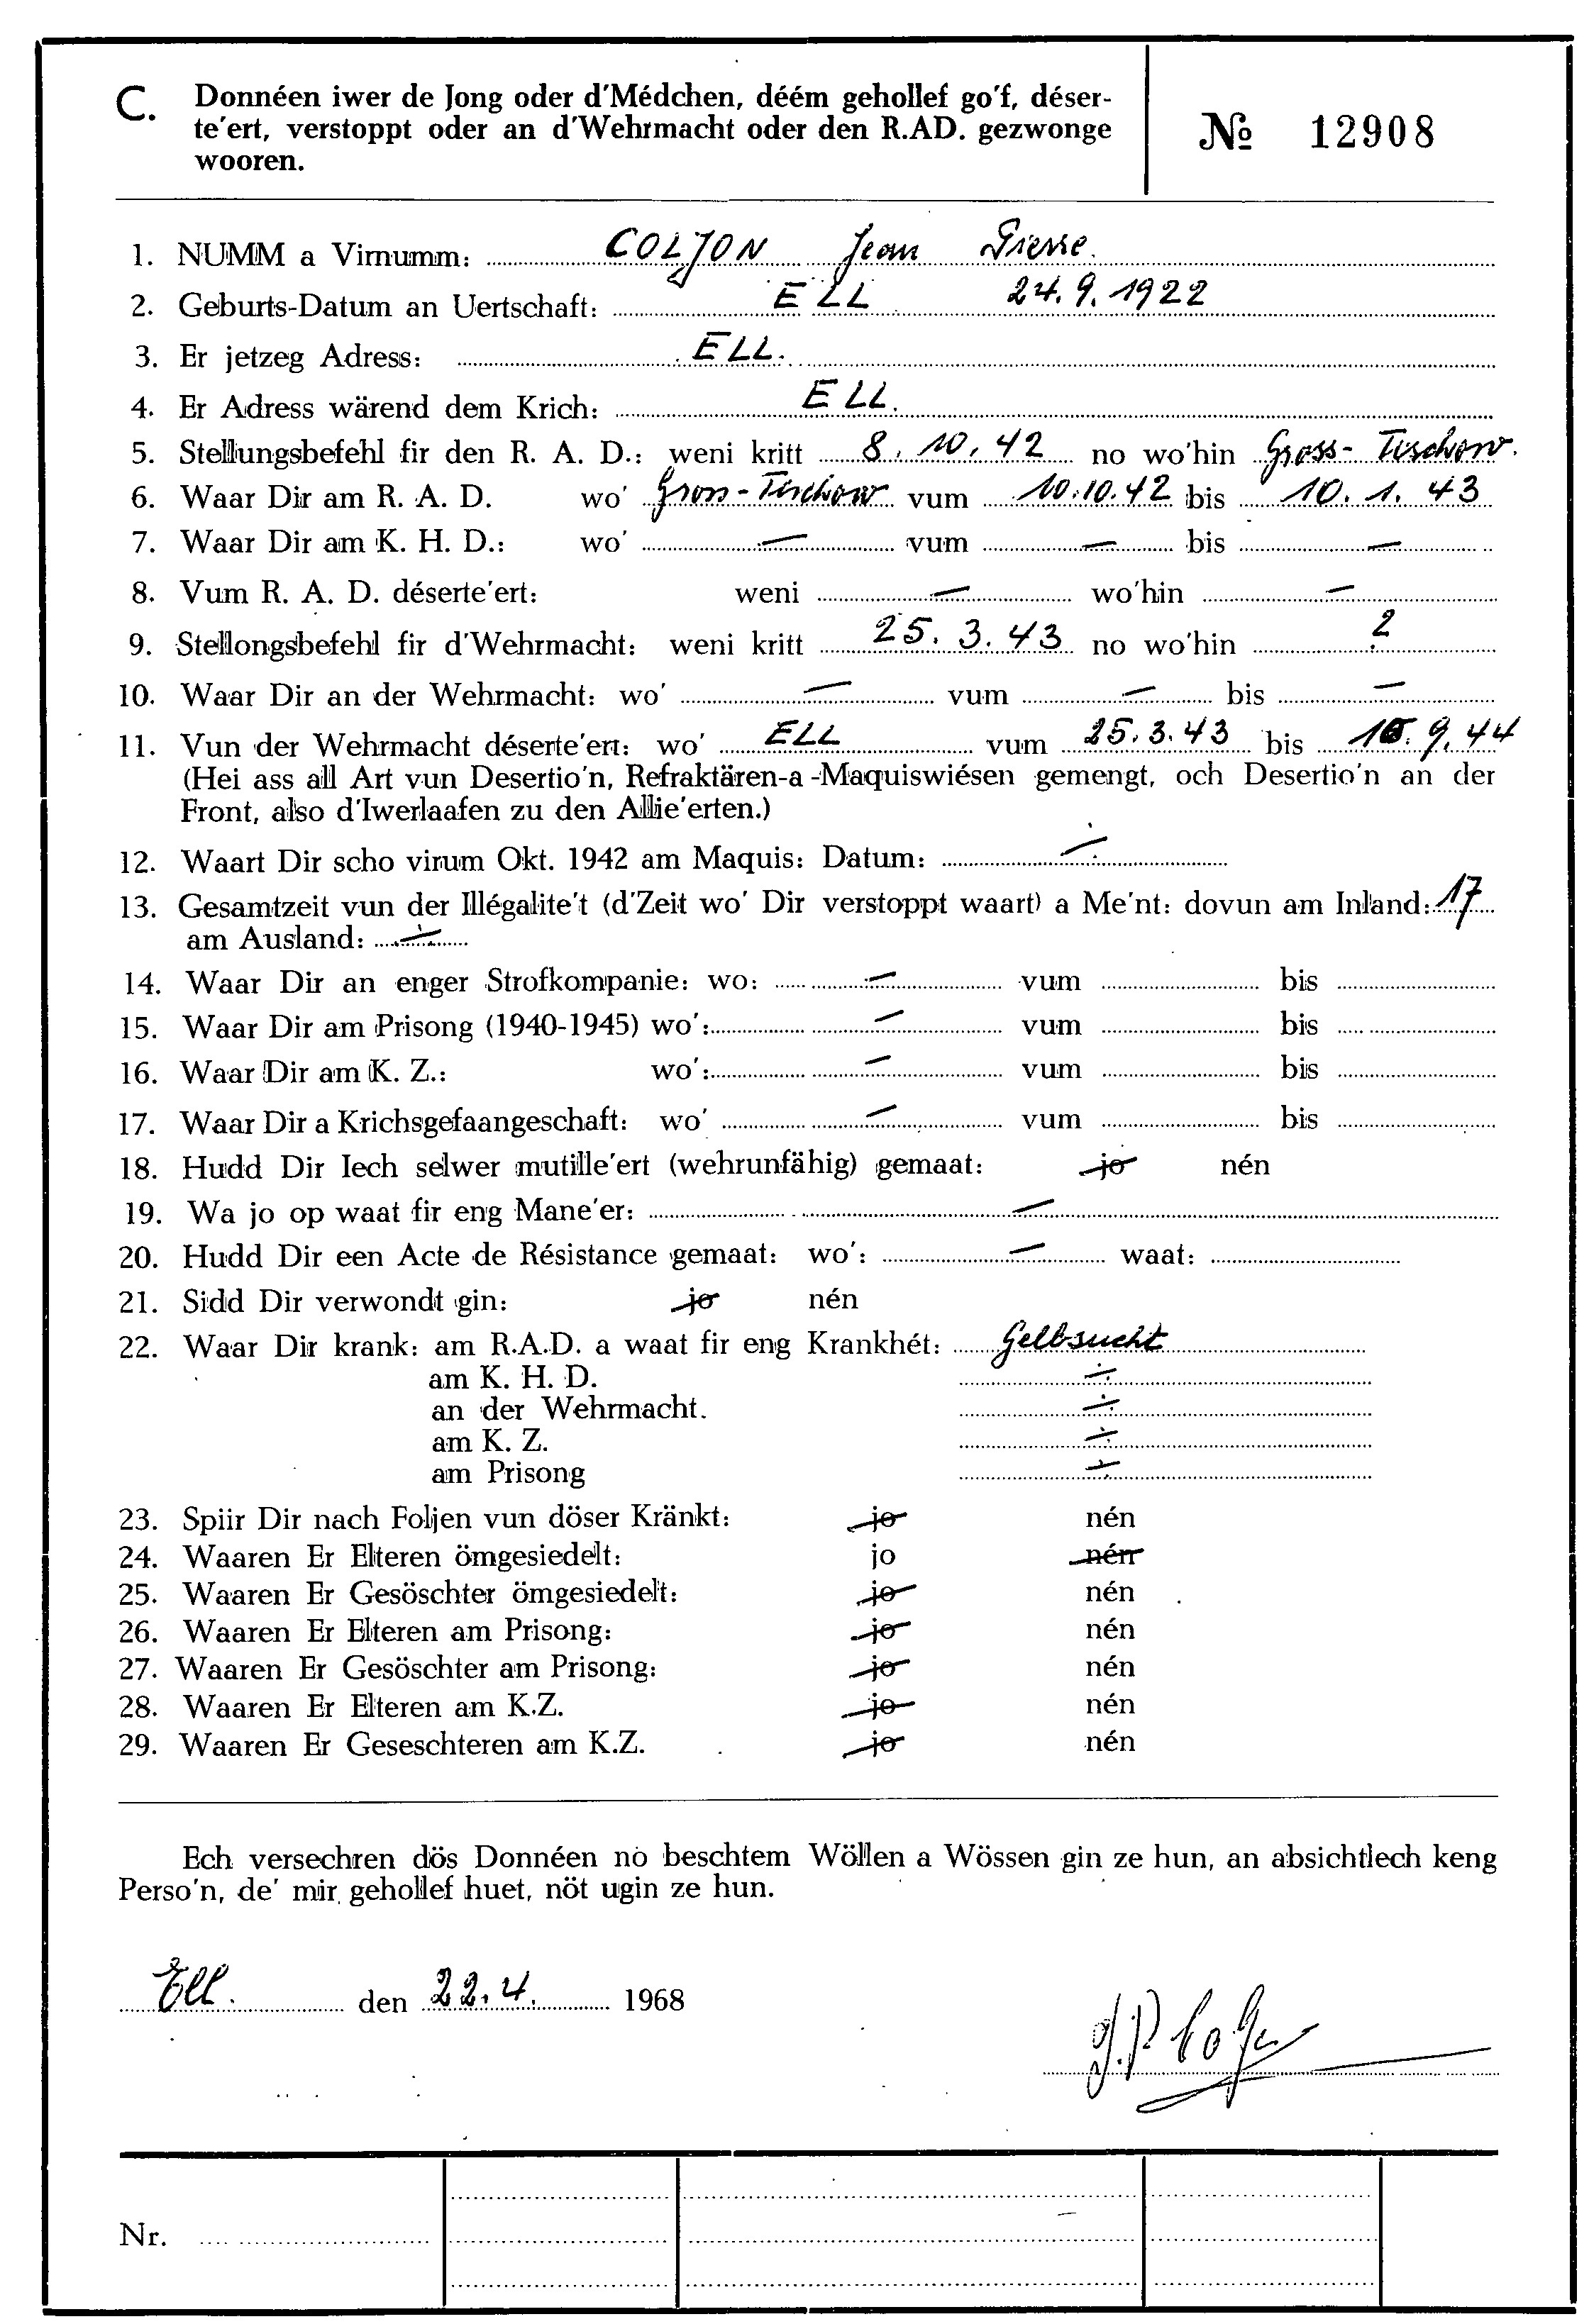 C. Donnéen iwer de Jong oder d'Médchen, déém gehollef go'f, déser-
te'ert, verstoppt oder an d'Wehrmacht oder den R.AD. gezwonge
wooren.
№ 12908
1. NUMM a Virnumm: COLJON Jean Pierre.
2. Geburts-Datum an Uertschaft: ELL 24.9.1922
3. Er jetzeg Adress: ELL.
4. Er Adress wärend dem Krich: ELL.
5. Stellungsbefehl fir den R. A. D.: weni kritt 8.10.42 no wo'hin Gross-Tischow.
6. Waar Dir am R. A. D. wo' Gross-Tischow vum 10.10.42 bis 10.1.43
7. Waar Dir am K. H. D.: wo' — vum — bis —
8. Vum R. A. D. déserte'ert: weni — wo'hin —
9. Stellongsbefehl fir d'Wehrmacht: weni kritt 25.3.43 no wo'hin ?
10. Waar Dir an der Wehrmacht: wo' — vum — bis —
11. Vun der Wehrmacht déserte'ert: wo' ELL vum 25.3.43 bis 9.44
(Hei ass all Art vun Desertio'n, Refraktären-a-Maquiswiésen gemengt, och Desertio'n an der
Front, also d'Iwerlaafen zu den Allie'erten.)
12. Waart Dir scho virum Okt. 1942 am Maquis: Datum: ÷
13. Gesamtzeit vun der Illégalite't (d'Zeit wo' Dir verstoppt waart) a Me'nt: dovun am Inland: 17
am Ausland: ÷
14. Waar Dir an enger Strofkompanie: wo: — vum bis
15. Waar Dir am Prisong (1940-1945) wo': — vum bis
16. Waar Dir am K. Z.: wo': — vum bis
17. Waar Dir a Krichsgefaangeschaft: wo' — vum bis
18. Hudd Dir Iech selwer mutille'ert (wehrunfähig) gemaat: jo nén
19. Wa jo op waat fir eng Mane'er: —
20. Hudd Dir een Acte de Résistance gemaat: wo': — waat:
21. Sidd Dir verwondt gin: jo nén
22. Waar Dir krank: am R.A.D. a waat fir eng Krankhét: Gelbsucht
am K. H. D. ÷
an der Wehrmacht. ÷
am K. Z. ÷
am Prisong ÷
23. Spiir Dir nach Foljen vun döser Kränkt: jo nén
24. Waaren Er Elteren ömgesiedelt: jo nén
25. Waaren Er Gesöschter ömgesiedelt: jo nén
26. Waaren Er Elteren am Prisong: jo nén
27. Waaren Er Gesöschter am Prisong: jo nén
28. Waaren Er Elteren am K.Z. jo nén
29. Waaren Er Geseschteren am K.Z. jo nén
Ech versechren dös Donnéen no beschtem Wöllen a Wössen gin ze hun, an absichtlech keng
Perso'n, de' mir gehollef huet, nöt ugin ze hun.
Ell. den 22.4. 1968
Nr.